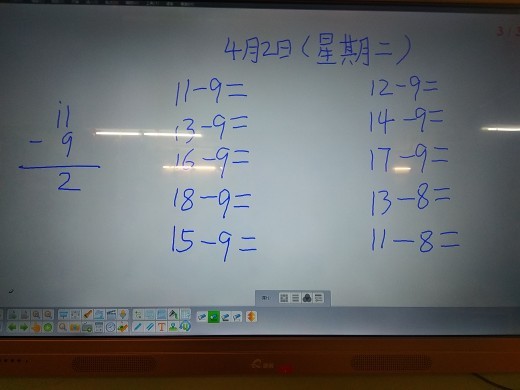 4月2日(星期二)
11
- 9
2
11-9=
13-9=
16-9=
18-9=
15-9=
12-9=
14-9=
17-9=
13-8=
11-8=